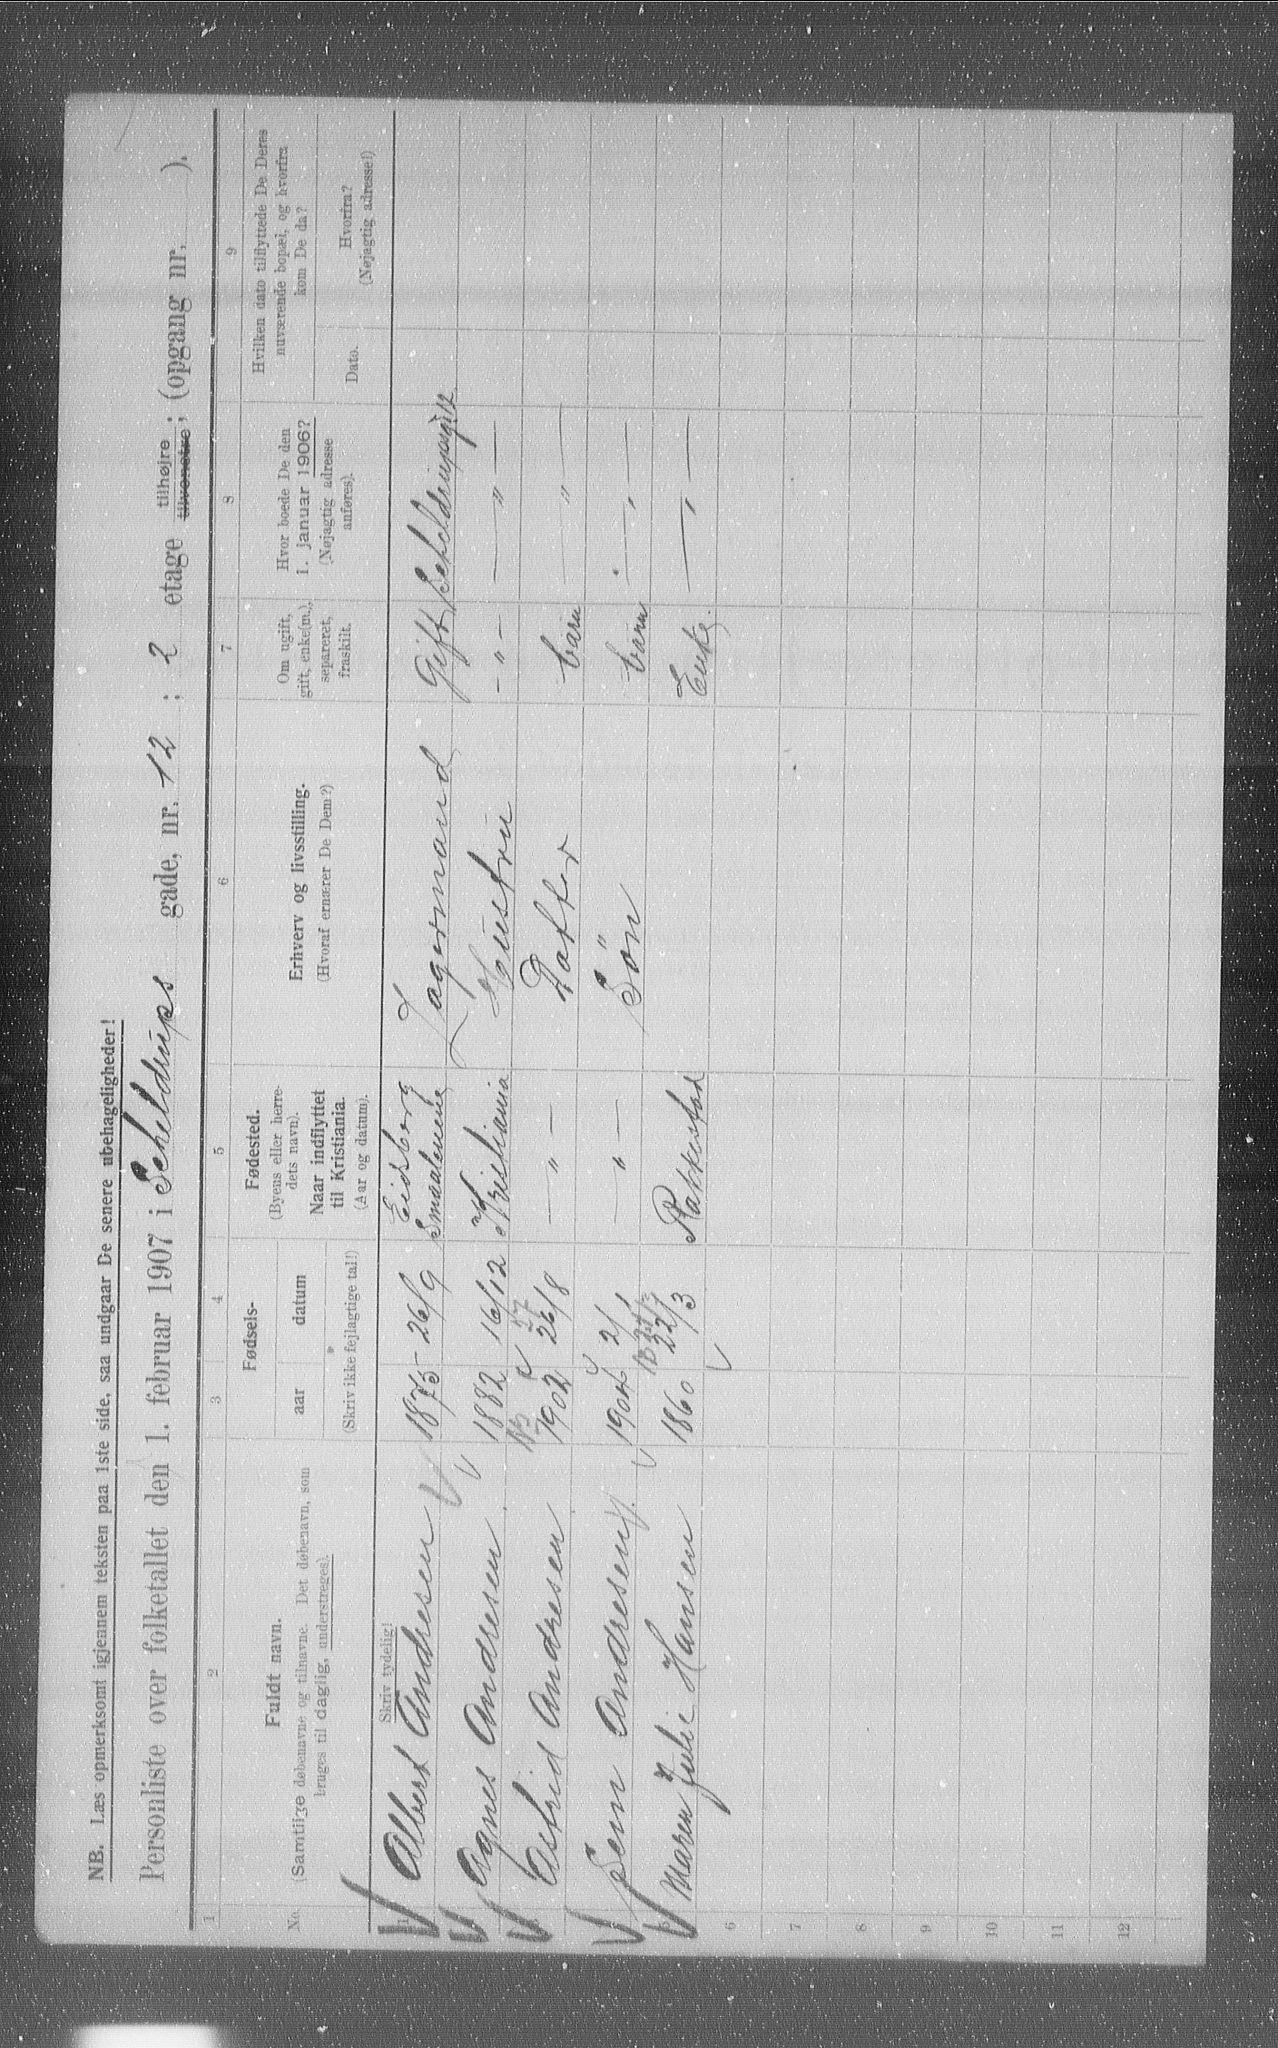 NB. Læs opmerksomt igjennem teksten paa 1ste side, saa undgaar De senere ubehageligheder!
Personliste over folketallet den 1. februar 1907 i Scheldrups gade, nr. 12 ; 2 etage tilhøjre tilvenstre; (opgang nr. ).
1 2 3 4 5 6 7 8 9
No. Fuldt navn. (Samtlige døbenavne og tilnavne. Det døbenavn, som bruges til daglig, understreges).
Fødsels-
aar datum
(Skriv ikke fejlagtige tal!)
Fødested.
(Byens eller herredets navn).
Naar indflyttet til Kristiania.
(Aar og datum).
Erhverv og livsstilling.
(Hvoraf ernærer De Dem?)
Om ugift, gift, enke(m.), separeret, fraskilt.
Hvor boede De den 1. januar 1906?
(Nøjagtig adresse anføres).
Hvilken dato tilflyttede De Deres nuværende bopæl, og hvorfra kom De da?
Dato. Hvorfra?
(Nøjagtig adresse!)
Skriv tydelig!
1 Albert Andresen 1875 26/9 Eidsberg Smaalenene Lagermand Gift Scheldrupsgt 12
Agnes Andresen 1882 16/12 Kristiania Hustru - " - — " —
Astrid Andresen 1902 26/8 — " — Datter barn — " —
Sem Andresen 1904 2/1 — " — Søn barn — " —
5 Maren Julie Hansen 1860 22/3 Rakkestad Enke. — " —
6
7
8
9
10
11
12